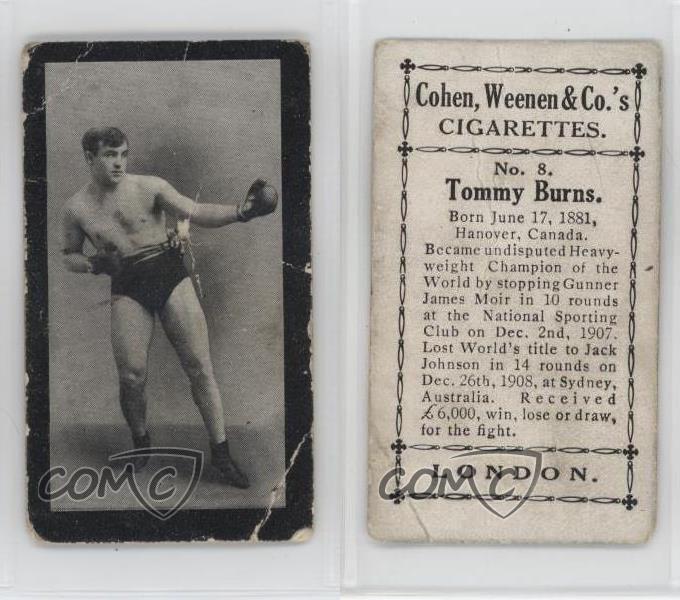 Cohen, Weenen & Co.'s
CIGARETTES.
No. 8.
Tommy Burns.
Born June 17, 1881,
Hanover, Canada.
Became undisputed Heavy-
weight Champion of the
World by stopping Gunner
James Moir in 10 rounds
at the National Sporting
Club on Dec. 2nd, 1907.
Lost World's title to Jack
Johnson in 14 rounds on
Dec. 26th, 1908, at Sydney,
Australia. Received
£6,000, win, lose or draw,
for the fight.
LONDON.
COMC
COMC